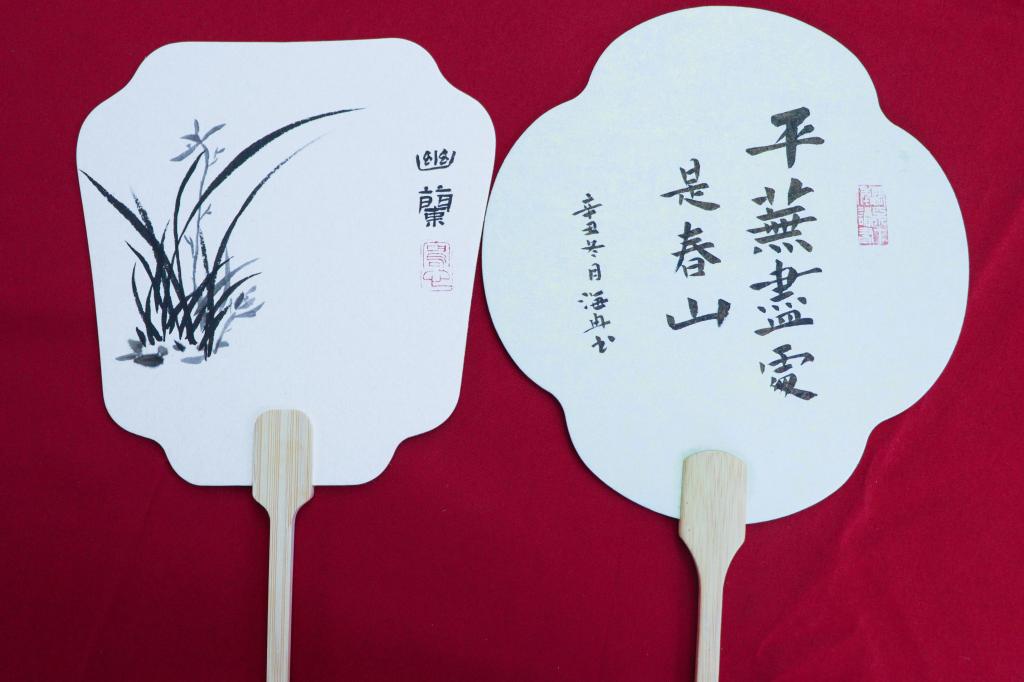 幽蘭
平蕪盡處
是春山
辛丑冬月海舟书